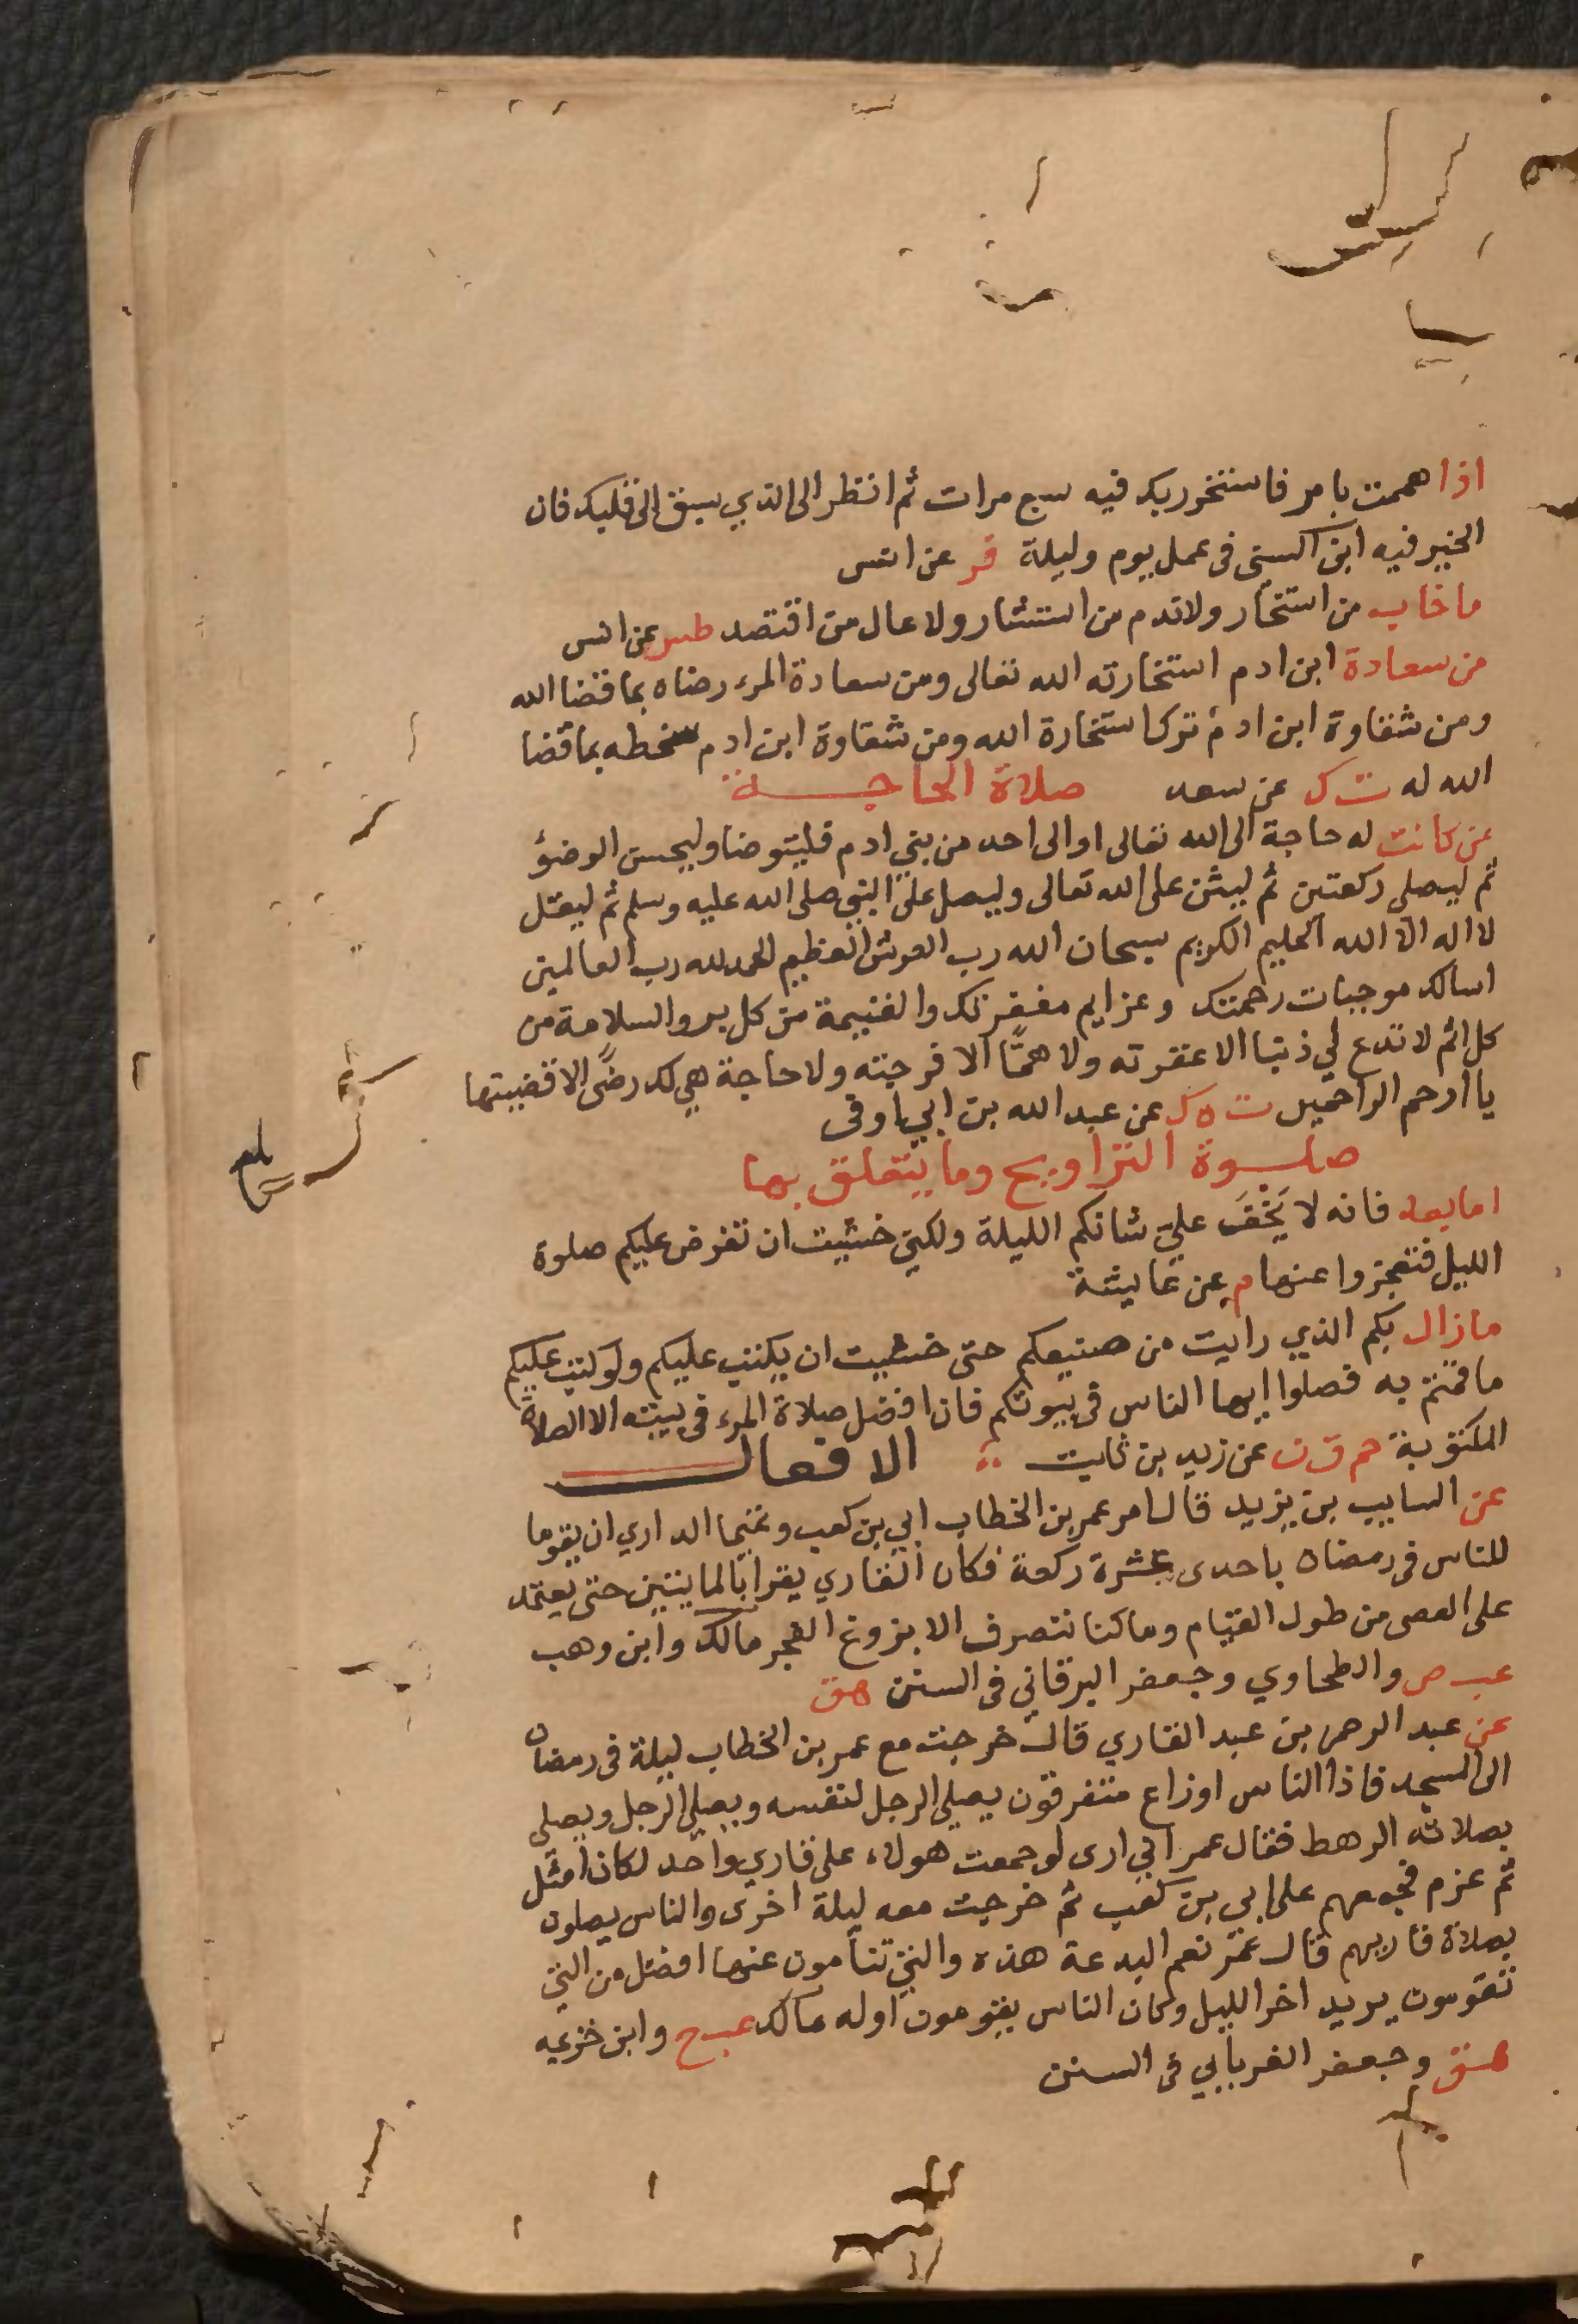 اذا هممت بامر فاستخر ربك فيه سبع مرات ثم انظر الى الذي سبق الى قلبك فان
الخير فيه ابن السني في عمل يوم وليلة فر عن انس
ما خاب من استخار ولا ندم من استشار ولا عال من اقتصد طس عن انس
من سعادة ابن ادم استخارته الله تعالى ومن سعادة المرء رضاه بما قضا الله
ومن شقاوة ابن ادم ترك استخارة الله ومن شقاوة ابن ادم سخطه بما قضا
الله له ت ك عن سعد صلاة الحاجة
من كانت له حاجة الى الله تعالى او الى احد من بني ادم فليتوضا وليحسن الوضؤ
ثم ليصلي ركعتين ثم ليثن على الله تعالى وليصل على النبي صلى الله عليه وسلم ثم ليقل
لا اله الا الله الحليم الكريم سبحان الله رب العرش العظيم الحمد لله رب العالمين
اسالك موجبات رحمتك وعزايم مغفرتك والغنيمة من كل بر والسلامة من
كل اثم لا تدع لي ذنبا الا غفرته ولا همًّا الا فرجته ولا حاجة هي لك رضًى الا قضيتها
يا ارحم الراحمين ت ه ك عن عبد الله بن ابي اوفى
صلوة التراويح وما يتعلق بها
اما بعد فانه لا يَخْفَ علي شانكم الليلة ولكني خشيت ان تفرض عليكم صلوة
الليل فتعجزوا عنها م عن عايشة
ما زال بكم الذي رايت من صنيعكم حتى خشيت ان يكتب عليكم ولو كتب عليكم
ما قمتم به فصلوا ايها الناس في بيوتكم فان افضل صلاة المرء في بيته الا الصلاة
المكتوبة حم ق ن عن زيد بن ثابت الافعال
عن السايب بن يزيد قال امر عمر بن الخطاب ابي بن كعب وتميما الداري ان يقوما
للناس في رمضان باحدى عشرة ركعة فكان القاري يقرا بالمايتين حتى يعتمد
على العصى من طول القيام وما كنا ننصرف الا بزوغ الفجر مالك وابن وهب
عب ص والطحاوي وجعفر البرقاني في السنن هق
عن عبد الرحمن بن عبد القاري قال خرجت مع عمر بن الخطاب ليلة في رمضان
الى المسجد فاذا الناس اوزاع متفرقون يصلي الرجل لنفسه ويصلي الرجل ويصلي
بصلاته الرهط فقال عمر اني ارى لو جمعت هولاء على قاري واحد لكان امثل
ثم عزم فجمعهم على ابي بن كعب ثم خرجت معه ليلة اخرى والناس يصلون
بصلاة قاريهم قال عمر نعم البدعة هذه والتي تنامون عنها افضل من التي
تقومون يريد اخر الليل وكان الناس يقومون اوله مالك عب خ وابن خزيمه
هق وجعفر الفريابي في السنن